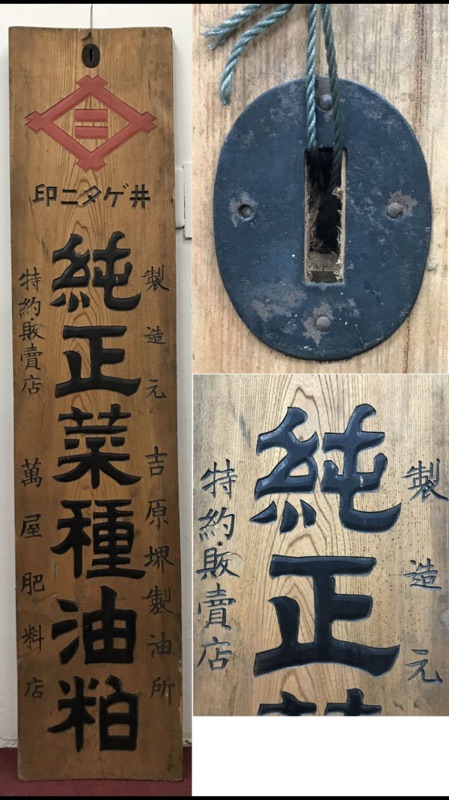 井ゲタ二印
製造元 吉原堺製油所
純正菜種油粕
特約販賣店 萬屋肥料店
製造元
純正
特約販賣店